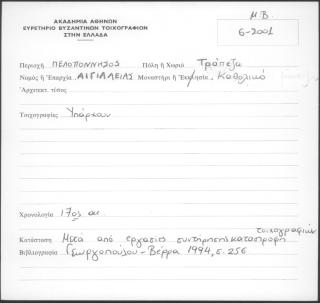 ΑΚΑΔΗΜΙΑ ΑΘΗΝΩΝ
ΕΥΡΕΤΗΡΙΟ ΒΥΖΑΝΤΙΝΩΝ ΤΟΙΧΟΓΡΑΦΙΩΝ
ΣΤΗΝ ΕΛΛΑΔΑ
Μ.Β.
6-2001
Περιοχή ΠΕΛΟΠΟΝΝΗΣΟΣ Πόλη ἤ Χωριό Τράπεζα
Νομός ἤ Ἐπαρχία ΑΙΓΙΑΛΕΙΑΣ Μοναστήρι ἤ Ἐκκλησία Καθολικό
Ἀρχιτεκτ. τύπος
Τοιχογραφίες Υπάρχουν
Χρονολογία 17ος αι.
τοιχογραφιών
Κατάσταση Μετά από εργασίες συντήρησης καταστροφή
Βιβλιογραφία Γεωργοπούλου-Βέρρα 1994, σ. 256